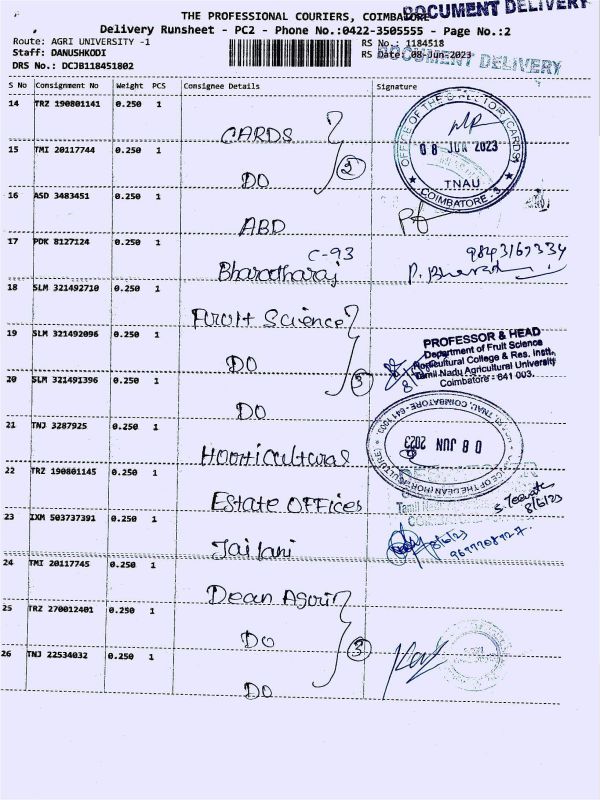 THE PROFESSIONAL COURIERS, COIMBATORE
DOCUMENT DELIVERY
Delivery Runsheet - PC2 - Phone No.:0422-3505555 - Page No.:2
Route: AGRI UNIVERSITY -1
RS No.: 1184518
Staff: DANUSHKODI
RS Date: 08-Jun-2023
DOCUMENT DELIVERY
DRS No.: DCJB118451802
S No Consignment No Weight PCS Consignee Details Signature
14 TRZ 190801141 0.250 1 CARDS
OFFICE OF THE DIRECTOR (CARDS)
08 JUN 2023
TNAU
COIMBATORE - 3.
15 TMI 20117744 0.250 1 DO
2
16 ASD 3483451 0.250 1 ABD
17 PDK 8127124 0.250 1 C-93
Bharatharaj
9843167334
P. Bharath
18 SLM 321492710 0.250 1 Fruit Science
19 SLM 321492096 0.250 1 DO
3
PROFESSOR & HEAD
Department of Fruit Science
Horticultural College & Res. Instt.,
Tamil Nadu Agricultural University
Coimbatore - 641 003.
20 SLM 321491396 0.250 1 DO
21 TNJ 3287925 0.250 1 Hoorticultural
TNAU, COIMBATORE - 641 003
08 JUN 2023
OFFICE OF THE DEAN (HORTICULTURE)
22 TRZ 190801145 0.250 1 Estate OFFices
8/6/23
23 IXM 503737391 0.250 1 Jailani
8/6/23
24 TMI 20117745 0.250 1 Dean Agori
25 TRZ 270012401 0.250 1 DO
3
26 TNJ 22534032 0.250 1 DO